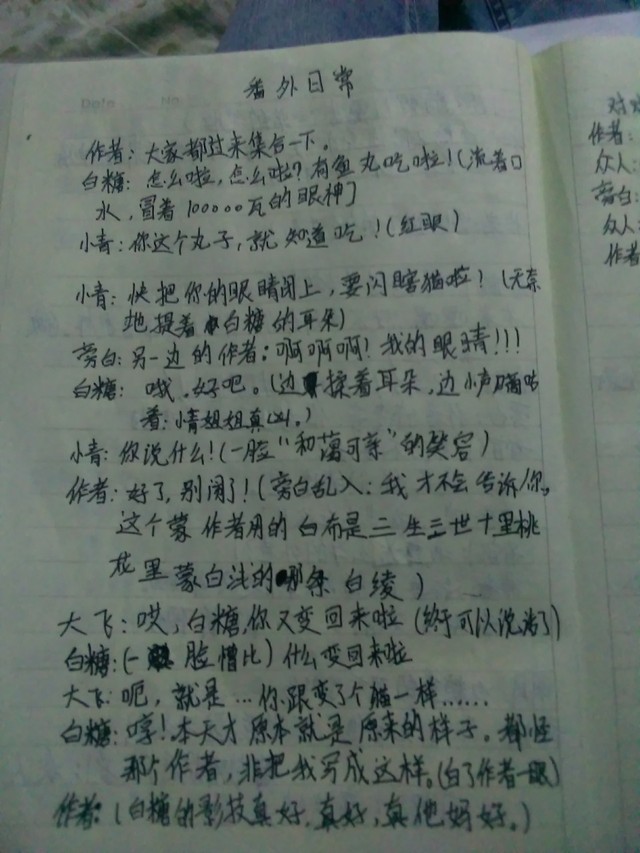 番外日常
作者：大家都过来集合一下。
白糖：怎么啦，怎么啦？有鱼丸吃啦！（流着口
水，冒着100000瓦的眼神）
小青：你这个丸子，就知道吃！（红眼）
小青：快把你的眼睛闭上，要闪瞎猫啦！（无奈
地提着白糖的耳朵）
旁白：另一边的作者：啊啊啊！我的眼睛！！！
白糖：哦，好吧。（边揉着耳朵，边小声嘀咕
着：情姐姐真凶。）
小青：你说什么！（一脸“和蔼可亲”的笑容）
作者：好了，别闹了！（旁白乱入：我才不会告诉你，
这个蒙作者用的白布是三生三世十里桃
花里蒙白浅的那条白绫）
大飞：哎，白糖，你又变回来啦（终于可以说话了）
白糖：（一脸懵比）什么变回来啦
大飞：呃，就是…你跟变了个猫一样……
白糖：哼！本天才原本就是原来的样子。都怪
那个作者，非把我写成这样。（白了作者一眼）
作者：（白糖的影技真好，真好，真他妈好。）
对
作者：
众人：
旁白：
众人：
作者